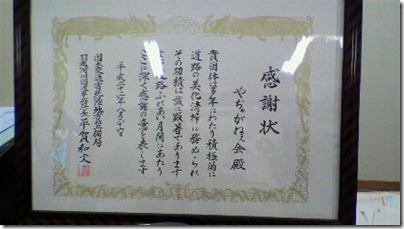 感謝状
やぢゃがねぇ会 殿
貴団体は多年にわたり積極的に
道路の美化清掃に務められ
その功績は誠に顕著であります
道路ふれあい月間にあたり
ここに深く感謝の意を表します
平成二十二年八月二十六日
国土交通省北陸地方整備局
国道事務所長 平賀和文